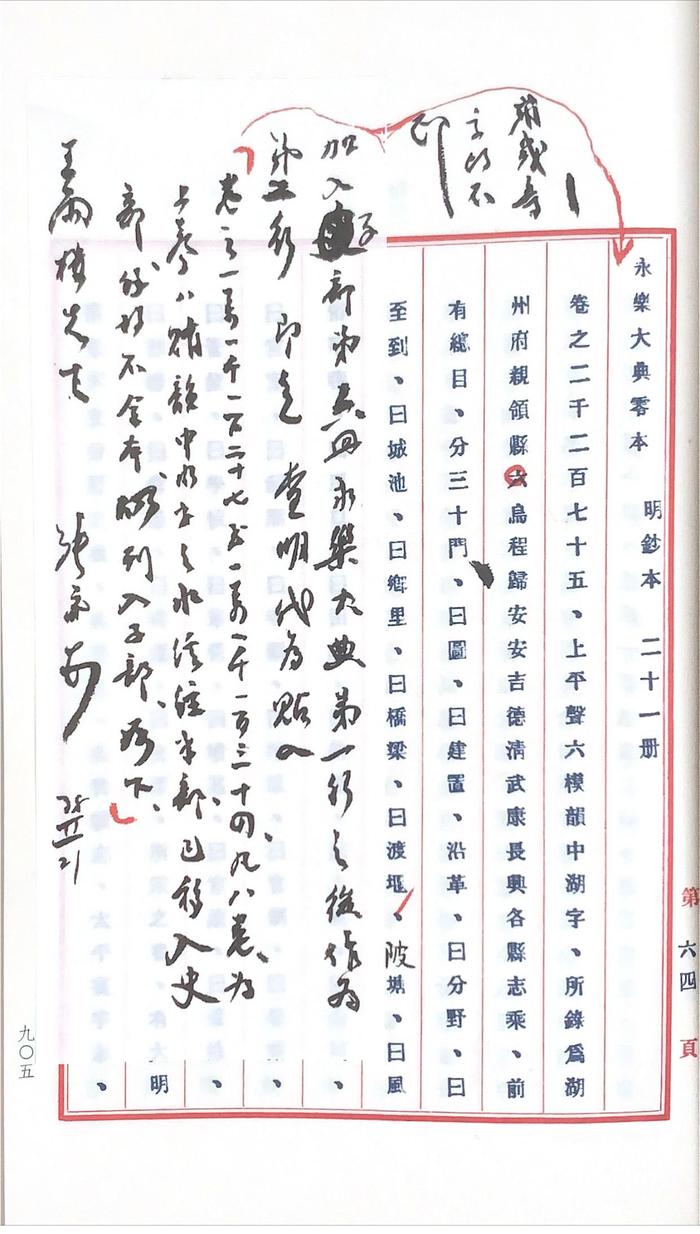 永樂大典零本　明鈔本　二十一册
卷之二千二百七十五、上平聲六模韻中湖字、所錄爲湖
州府親領縣六烏程歸安安吉德清武康長興各縣志乘、前
有總目、分三十門、曰圖、曰建置、沿革、曰分野、曰
至到、曰城池、曰鄉里、曰橋梁、曰渡堰、陂塘、曰風
加入子部第五册永樂大典第一行之後作爲
第二行 即乞 查明代爲點入
卷之一萬一千一百二十七至一萬一千一百三十四凡八卷、爲
上聲八賄韻中水字之水經注半部、已移入史
部、
不全本、列入子部、
王雨樓先生
明
第六四頁
九〇五